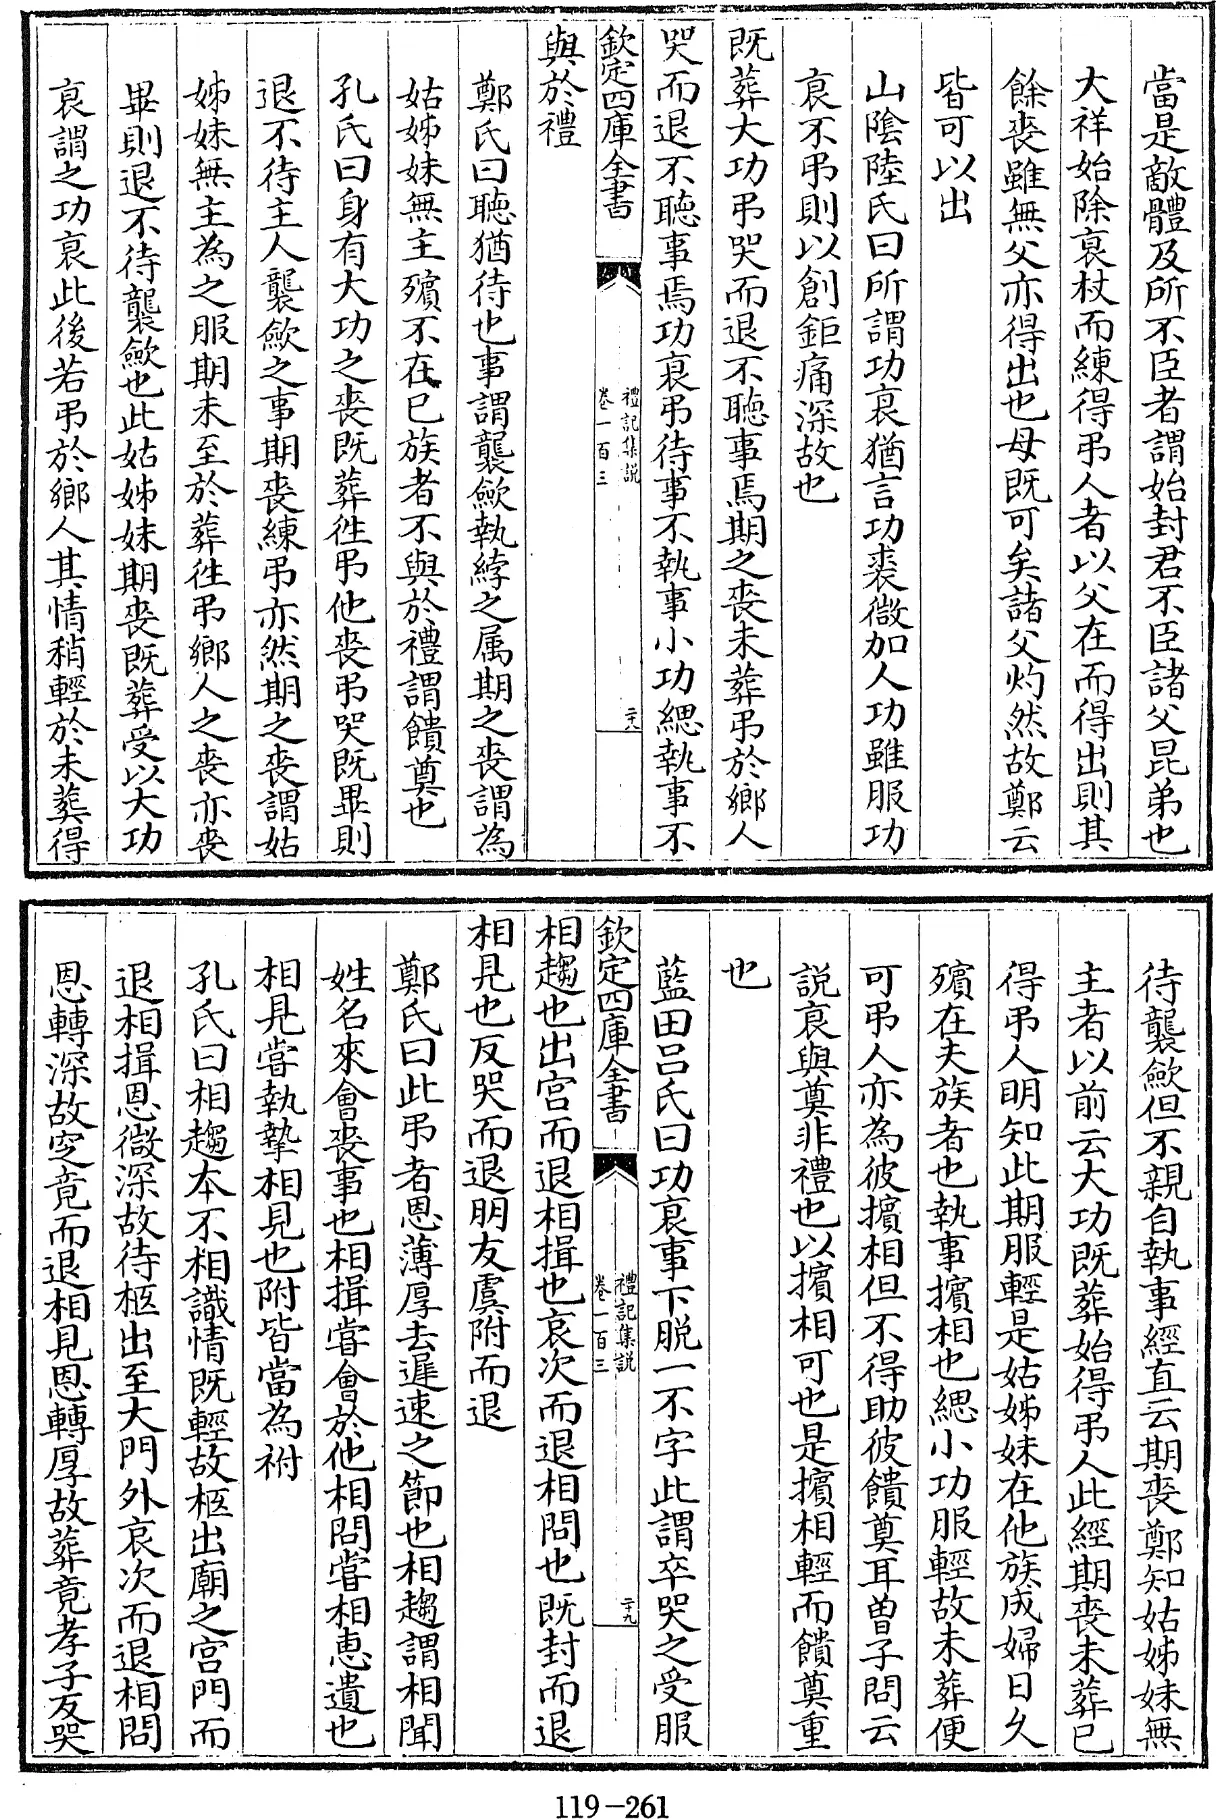 當是敵體及所不臣者謂始封君不臣諸父昆弟也
大祥始除衰杖而練得弔人者以父在而得出則其
餘喪雖無父亦得出也母既可矣諸父灼然故鄭云
皆可以出
山陰陸氏曰所謂功衰猶言功裘微加人功雖服功
衰不弔則以創鉅痛深故也
既葬大功弔哭而退不聽事焉期之喪未葬弔於鄉人
哭而退不聽事焉功衰弔待事不執事小功緦執事不
欽定四庫全書
禮記集說
卷一百三
二十八
與於禮
鄭氏曰聽猶待也事謂襲斂執綍之属期之喪謂為
姑姊妹無主殯不在己族者不與於禮謂饋奠也
孔氏曰身有大功之喪既葬徃弔他喪弔哭既畢則
退不待主人襲斂之事期喪練弔亦然期之喪謂姑
姊妹無主為之服期未至於葬徃弔鄉人之喪亦喪
畢則退不待襲斂也此姑姊妹期喪既葬受以大功
衰謂之功衰此後若弔於鄉人其情稍輕於未葬得
待襲斂但不親自執事經直云期喪鄭知姑姊妹無
主者以前云大功既葬始得弔人此經期喪未葬已
得弔人明知此期服輕是姑姊妹在他族成婦日久
殯在夫族者也執事擯相也緦小功服輕故未葬便
可弔人亦為彼擯相但不得助彼饋奠耳曽子問云
說衰與奠非禮也以擯相可也是擯相輕而饋奠重
也
藍田吕氏曰功衰事下脱一不字此謂卒哭之受服
欽定四庫全書
禮記集說
卷一百三
二十九
相趨也出宫而退相揖也哀次而退相問也既封而退
相見也反哭而退朋友虞附而退
鄭氏曰此弔者恩薄厚去遲速之節也相趨謂相聞
姓名來會喪事也相揖嘗會於他相問嘗相恵遺也
相見嘗執摯相見也附皆當為祔
孔氏曰相趨本不相識情既輕故柩出廟之宫門而
退相揖恩微深故待柩出至大門外哀次而退相問
恩轉深故窆竟而退相見恩轉厚故葬竟孝子反哭
119-261